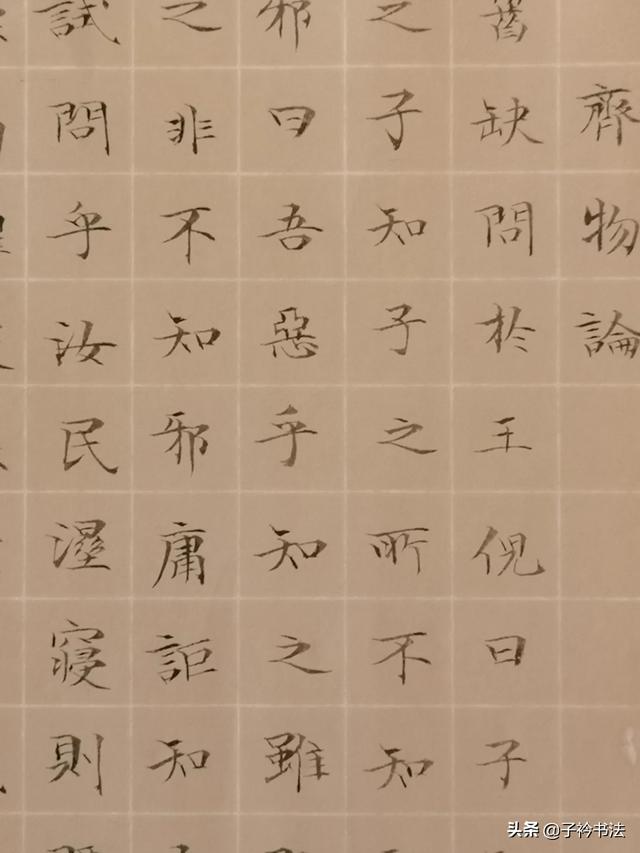 齊物論
缺問於王倪曰子
之子知子之所不知
邪曰吾惡乎知之雖
之非不知邪庸詎知
試問乎汝民濕寢則
头条 @子衿书法